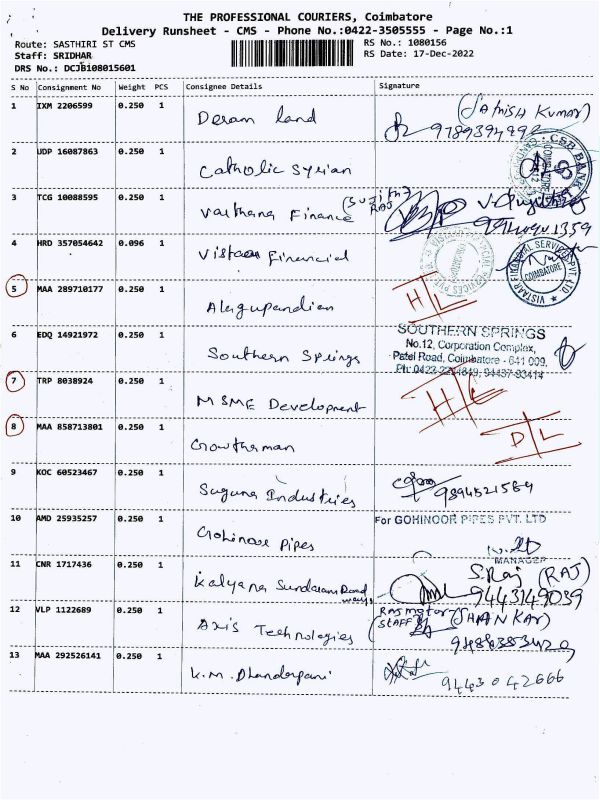 THE PROFESSIONAL COURIERS, Coimbatore
Delivery Runsheet - CMS - Phone No.:0422-3505555 - Page No.:1
Route: SASTHIRI ST CMS
RS No.: 1080156
Staff: SRIDHAR
RS Date: 17-Dec-2022
DRS No.: DCJBi08015601
S No Consignment No Weight PCS Consignee Details Signature
1 IXM 2206599 0.250 1
Deram land
(Satnish Kumar)
2 UDP 16087863 0.250 1
Catholic Syrian
CSB BANK
COIMBATORE
3 TCG 10088595 0.250 1
Varthana Finance (Sujith RAJ
4 HRD 357054642 0.096 1
Vistaar Financial
VISTAAR FINANCIAL SERVICES PVT. LTD
COIMBATORE
5 MAA 289710177 0.250 1
Alagupandian
H/L
6 EDQ 14921972 0.250 1
Southern Springs
SOUTHERN SPRINGS
No.12, Corporation Complex,
Patel Road, Coimbatore - 641 009.
7 TRP 8038924 0.250 1
MSME Development
H/L
8 MAA 858713801 0.250 1
Growthman
D/L
9 KOC 60523467 0.250 1
Suguna Industries
9894521569
10 AMD 25935257 0.250 1
Gohinoor Pipes
For GOHINOOR PIPES PVT. LTD
MANAGER
11 CNR 1717436 0.250 1
Kalyana Sundaram Road ways
S. Raj (RAJ)
9443149039
12 VLP 1122689 0.250 1
Axis Technologies
RAJ motor
(STAFF) (SHANKAR)
13 MAA 292526141 0.250 1
K.M. Dhandapani
9443042666